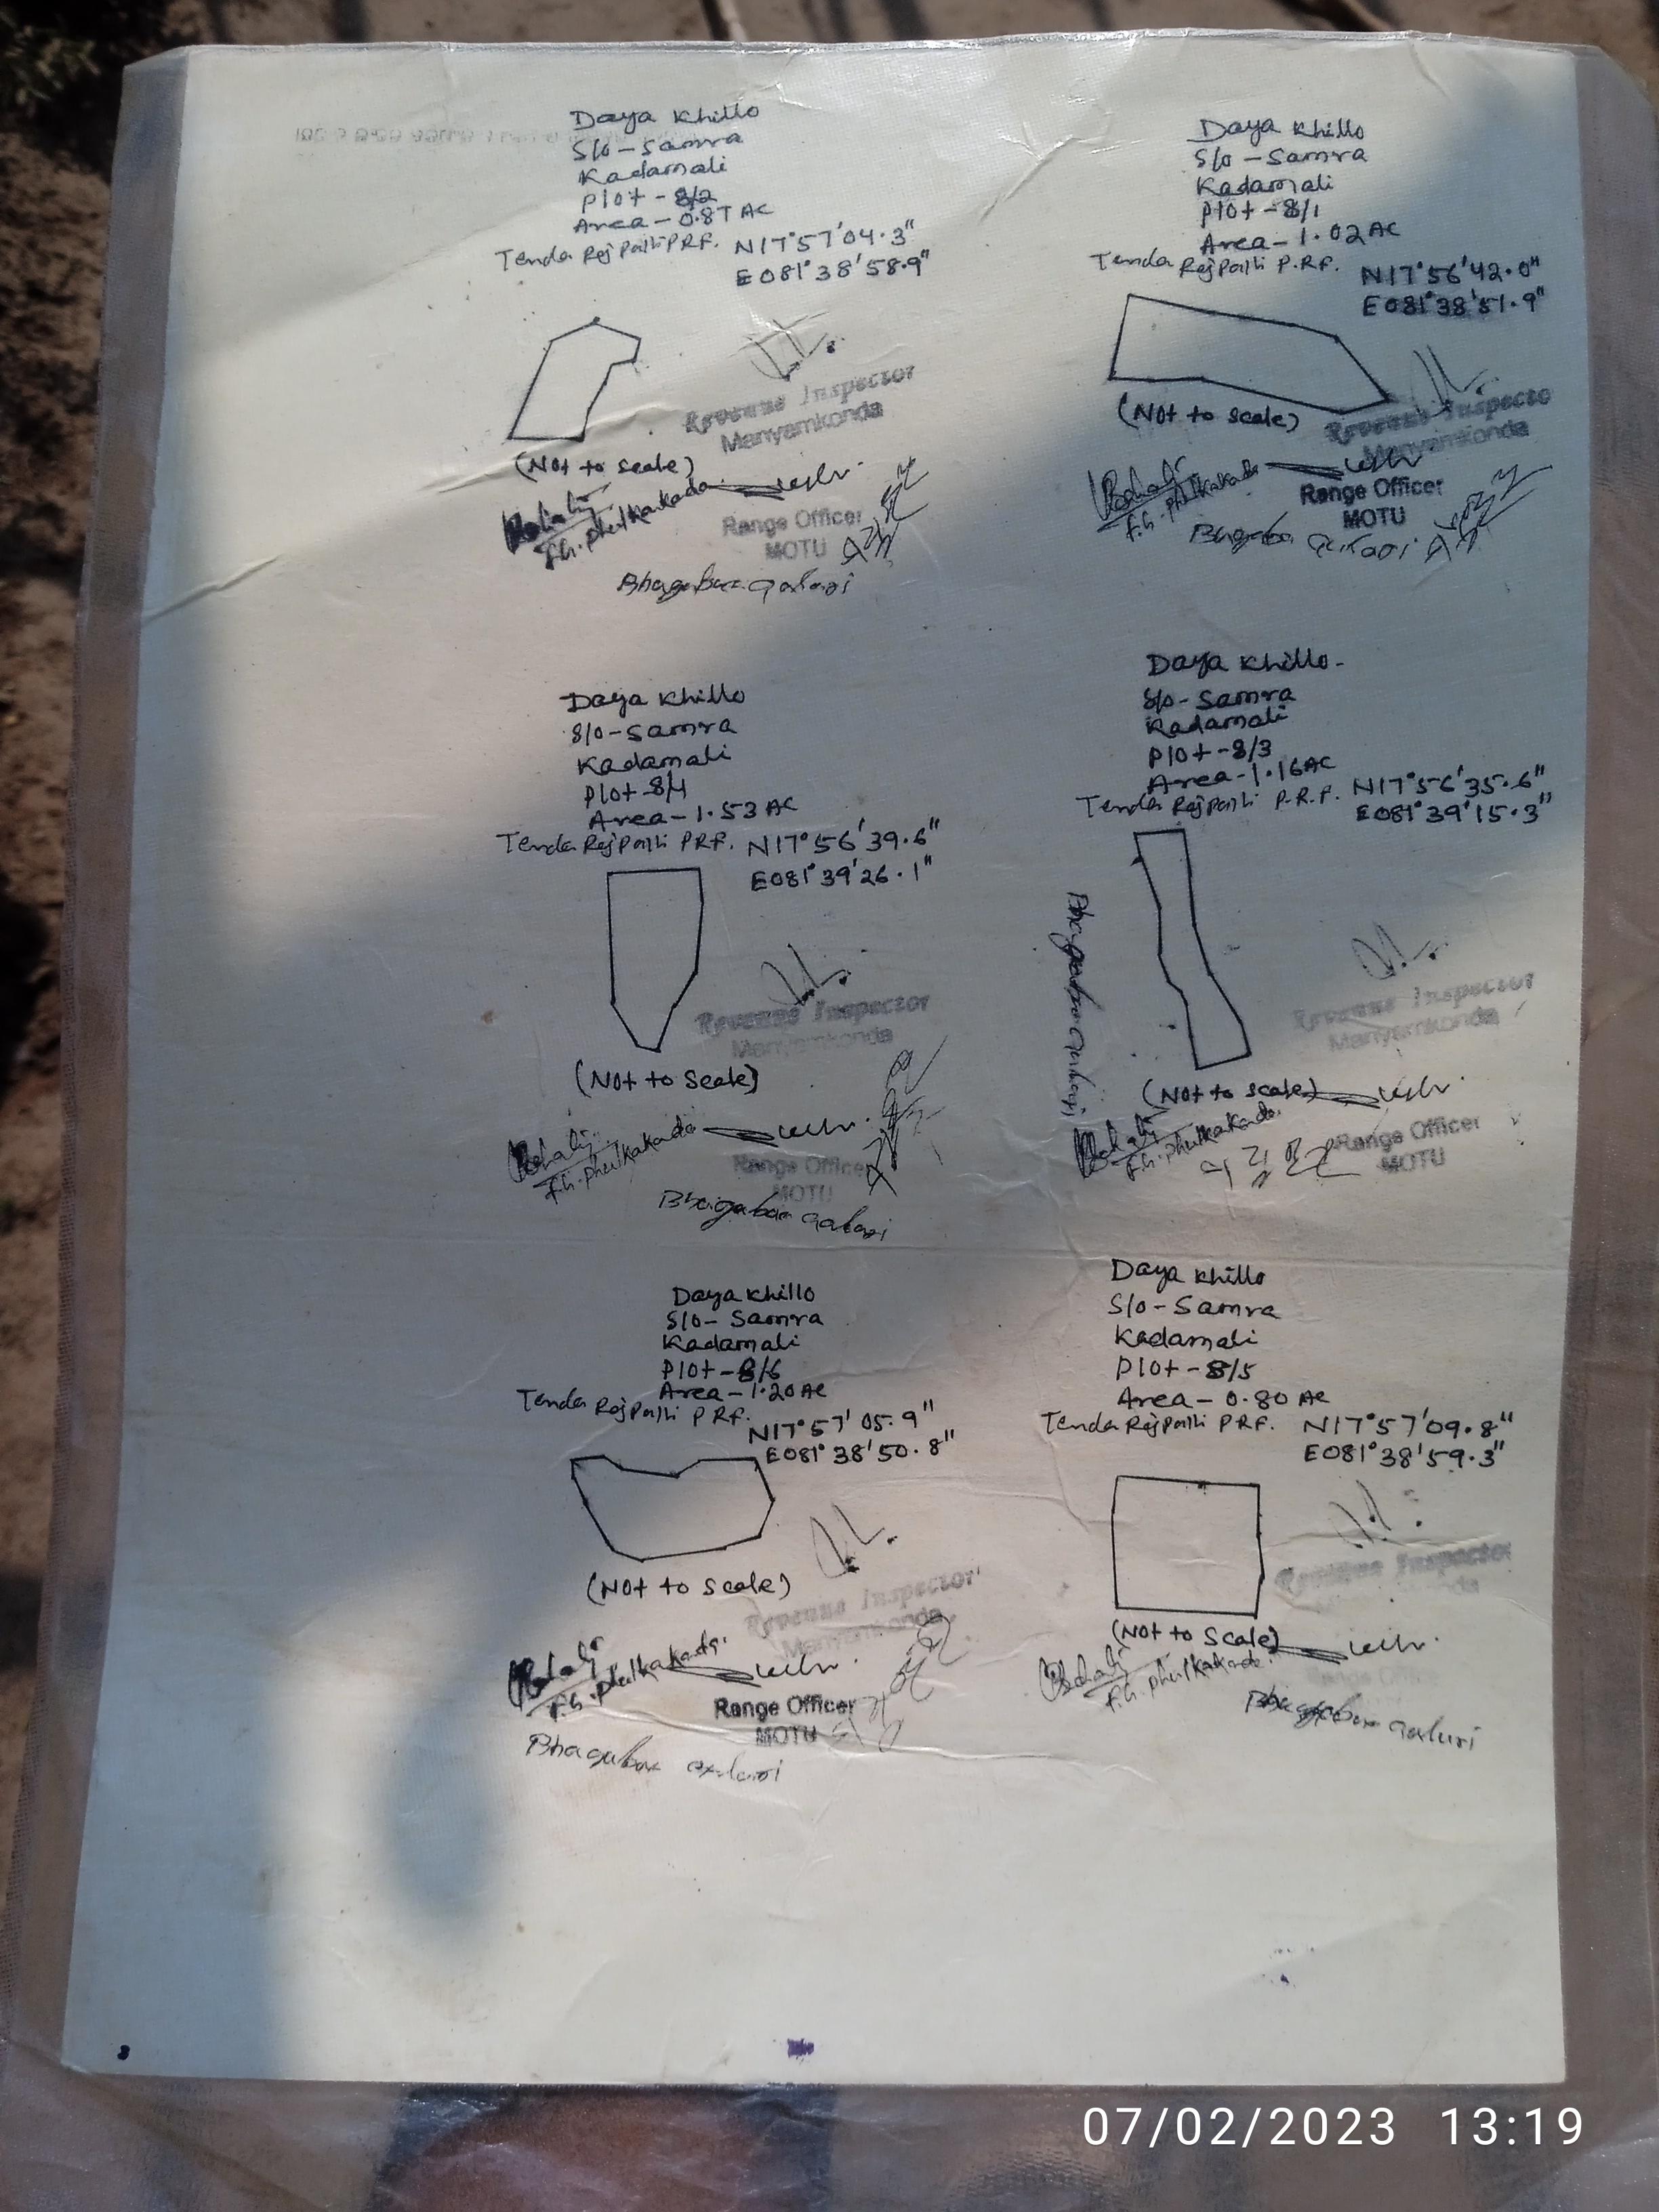 Daya Khillo
S/o - Samra
Kadamali
Plot - 8/2
Area - 0.87 AC
Tenda Rejpalli PRF.
N17°57'04.3"
E081°38'58.9"
Revenue Inspector
Manyamkonda
(Not to scale)
F.G. Phulkakada
Range Officer
MOTU
Daya Khillo
S/o - Samra
Kadamali
Plot - 8/1
Area - 1.02 AC
Tenda Rejpalli P.R.F.
N17°56'42.0"
E081°38'51.9"
(Not to scale)
Revenue Inspecto
Manyamkonda
F.G. Phulkakada
Range Officer
MOTU
Daya Khillo
S/o - Samra
Kadamali
Plot - 8/4
Area - 1.53 AC
Tenda Rejpalli PRF.
N17°56'39.6"
E081°39'26.1"
Revenue Inspector
Manyamkonda
(Not to Scale)
F.G. Phulkakada
Range Officer
MOTU
Daya Khillo -
S/o - Samra
Kadamali
Plot - 8/3
Area - 1.16 AC
Tenda Rejpalli P.R.F.
N17°56'35.6"
E081°39'15.3"
Revenue Inspector
Manyamkonda
(Not to scale)
F.G. Phulkakada
Range Officer
MOTU
Daya Khillo
S/o - Samra
Kadamali
Plot - 8/6
Area - 1.20 AC
Tenda Rejpalli PRF.
N17°57'05.9"
E081°38'50.8"
(Not to scale)
Revenue Inspector
Manyamkonda
F.G. Phulkakada
Range Officer
MOTU
Daya Khillo
S/o - Samra
Kadamali
Plot - 8/5
Area - 0.80 AC
Tenda Rejpalli PRF.
N17°57'09.8"
E081°38'59.3"
Revenue Inspector
(Not to Scale)
F.G. Phulkakada
07/02/2023 13:19